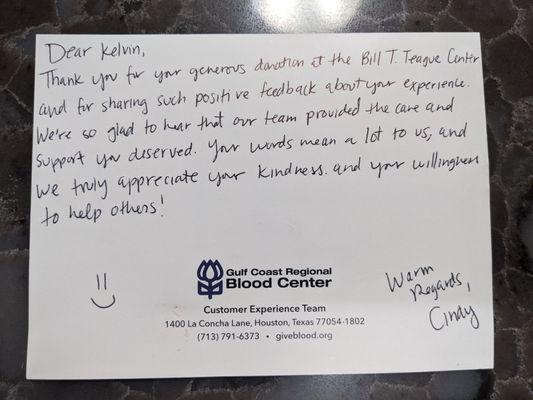 Dear Kelvin,
Thank you for your generous donation at the Bill T. Teague Center
and for sharing such positive feedback about your experience.
We're so glad to hear that our team provided the care and
support you deserved. Your words mean a lot to us, and
we truly appreciate your kindness. and your willingness
to help others!
Gulf Coast Regional
Blood Center
Customer Experience Team
1400 La Concha Lane, Houston, Texas 77054-1802
(713) 791-6373 • giveblood.org
Warm
Regards,
Cindy